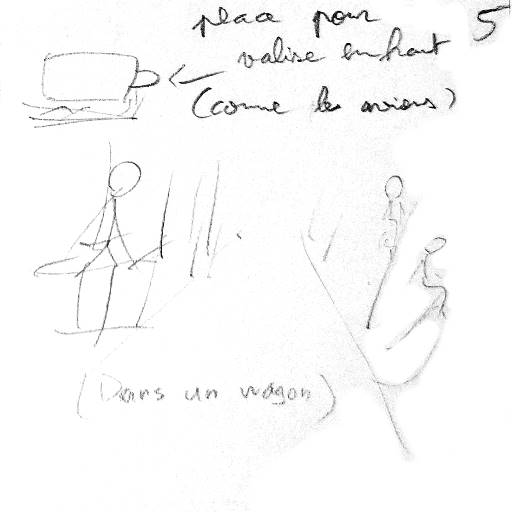 5
place pour
valise en haut
(comme les avions)
(Dans un wagon)